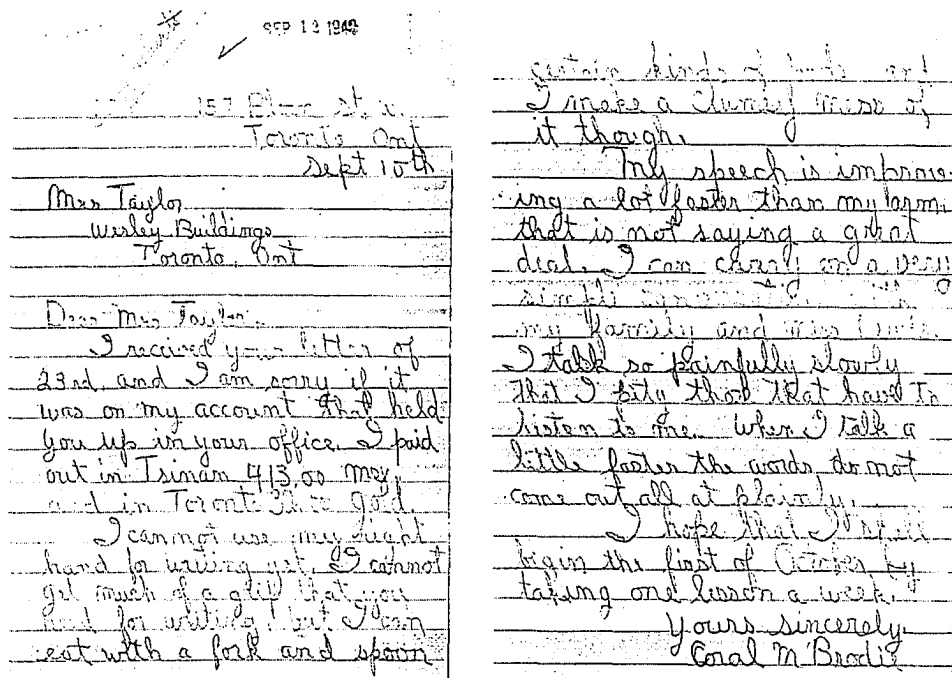 SEP 12 1940
157 Bloor St. W.
Toronto Ont
Sept 10th
Mrs Taylor
Wesley Buildings
Toronto, Ont
Dear Mrs Taylor.
I received your letter of
23rd. and I am sorry if it
was on my account that held
you up in your office. I paid
out in Tsinan 413.00 mex
and in Toronto gold.
I cannot use my right
hand for writing yet. I cannot
get much of a grip that you
need for writing, but I can
eat with a fork and spoon
certain kinds of foods and
I make a clumsy mess of
it though.
My speech is improve-
ing a lot faster than my arm.
that is not saying a great
deal. I can carry on a very
simple with
my family and miss
I talk so painfully slowly
that I pity those that have to
listen to me. When I talk a
little faster the words do not
come out all at plainly.
I hope that I shall
begin the first of October by
taking one lesson a week.
Yours sincerely
Coral M Brodie